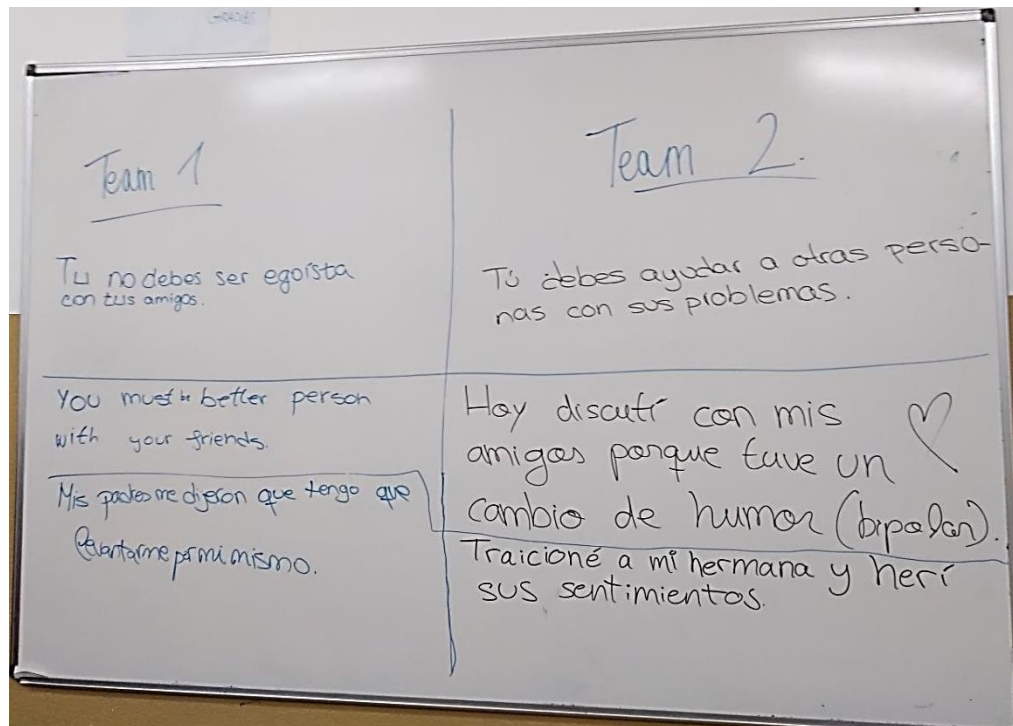 Team 1
Tu no debes ser egoísta
con tus amigos.
You must be better person
with your friends.
Mis padres me dijeron que tengo que
levantarme por mi mismo.
Team 2.
Tú debes ayudar a otras perso-
nas con sus problemas.
Hoy discutí con mis
amigos porque tuve un
cambio de humor (bipolar).
Traicioné a mi hermana y herí
sus sentimientos.